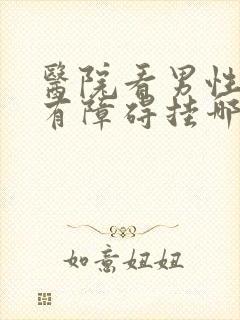 醫院看男性
有障碍挂哪
如意妞妞